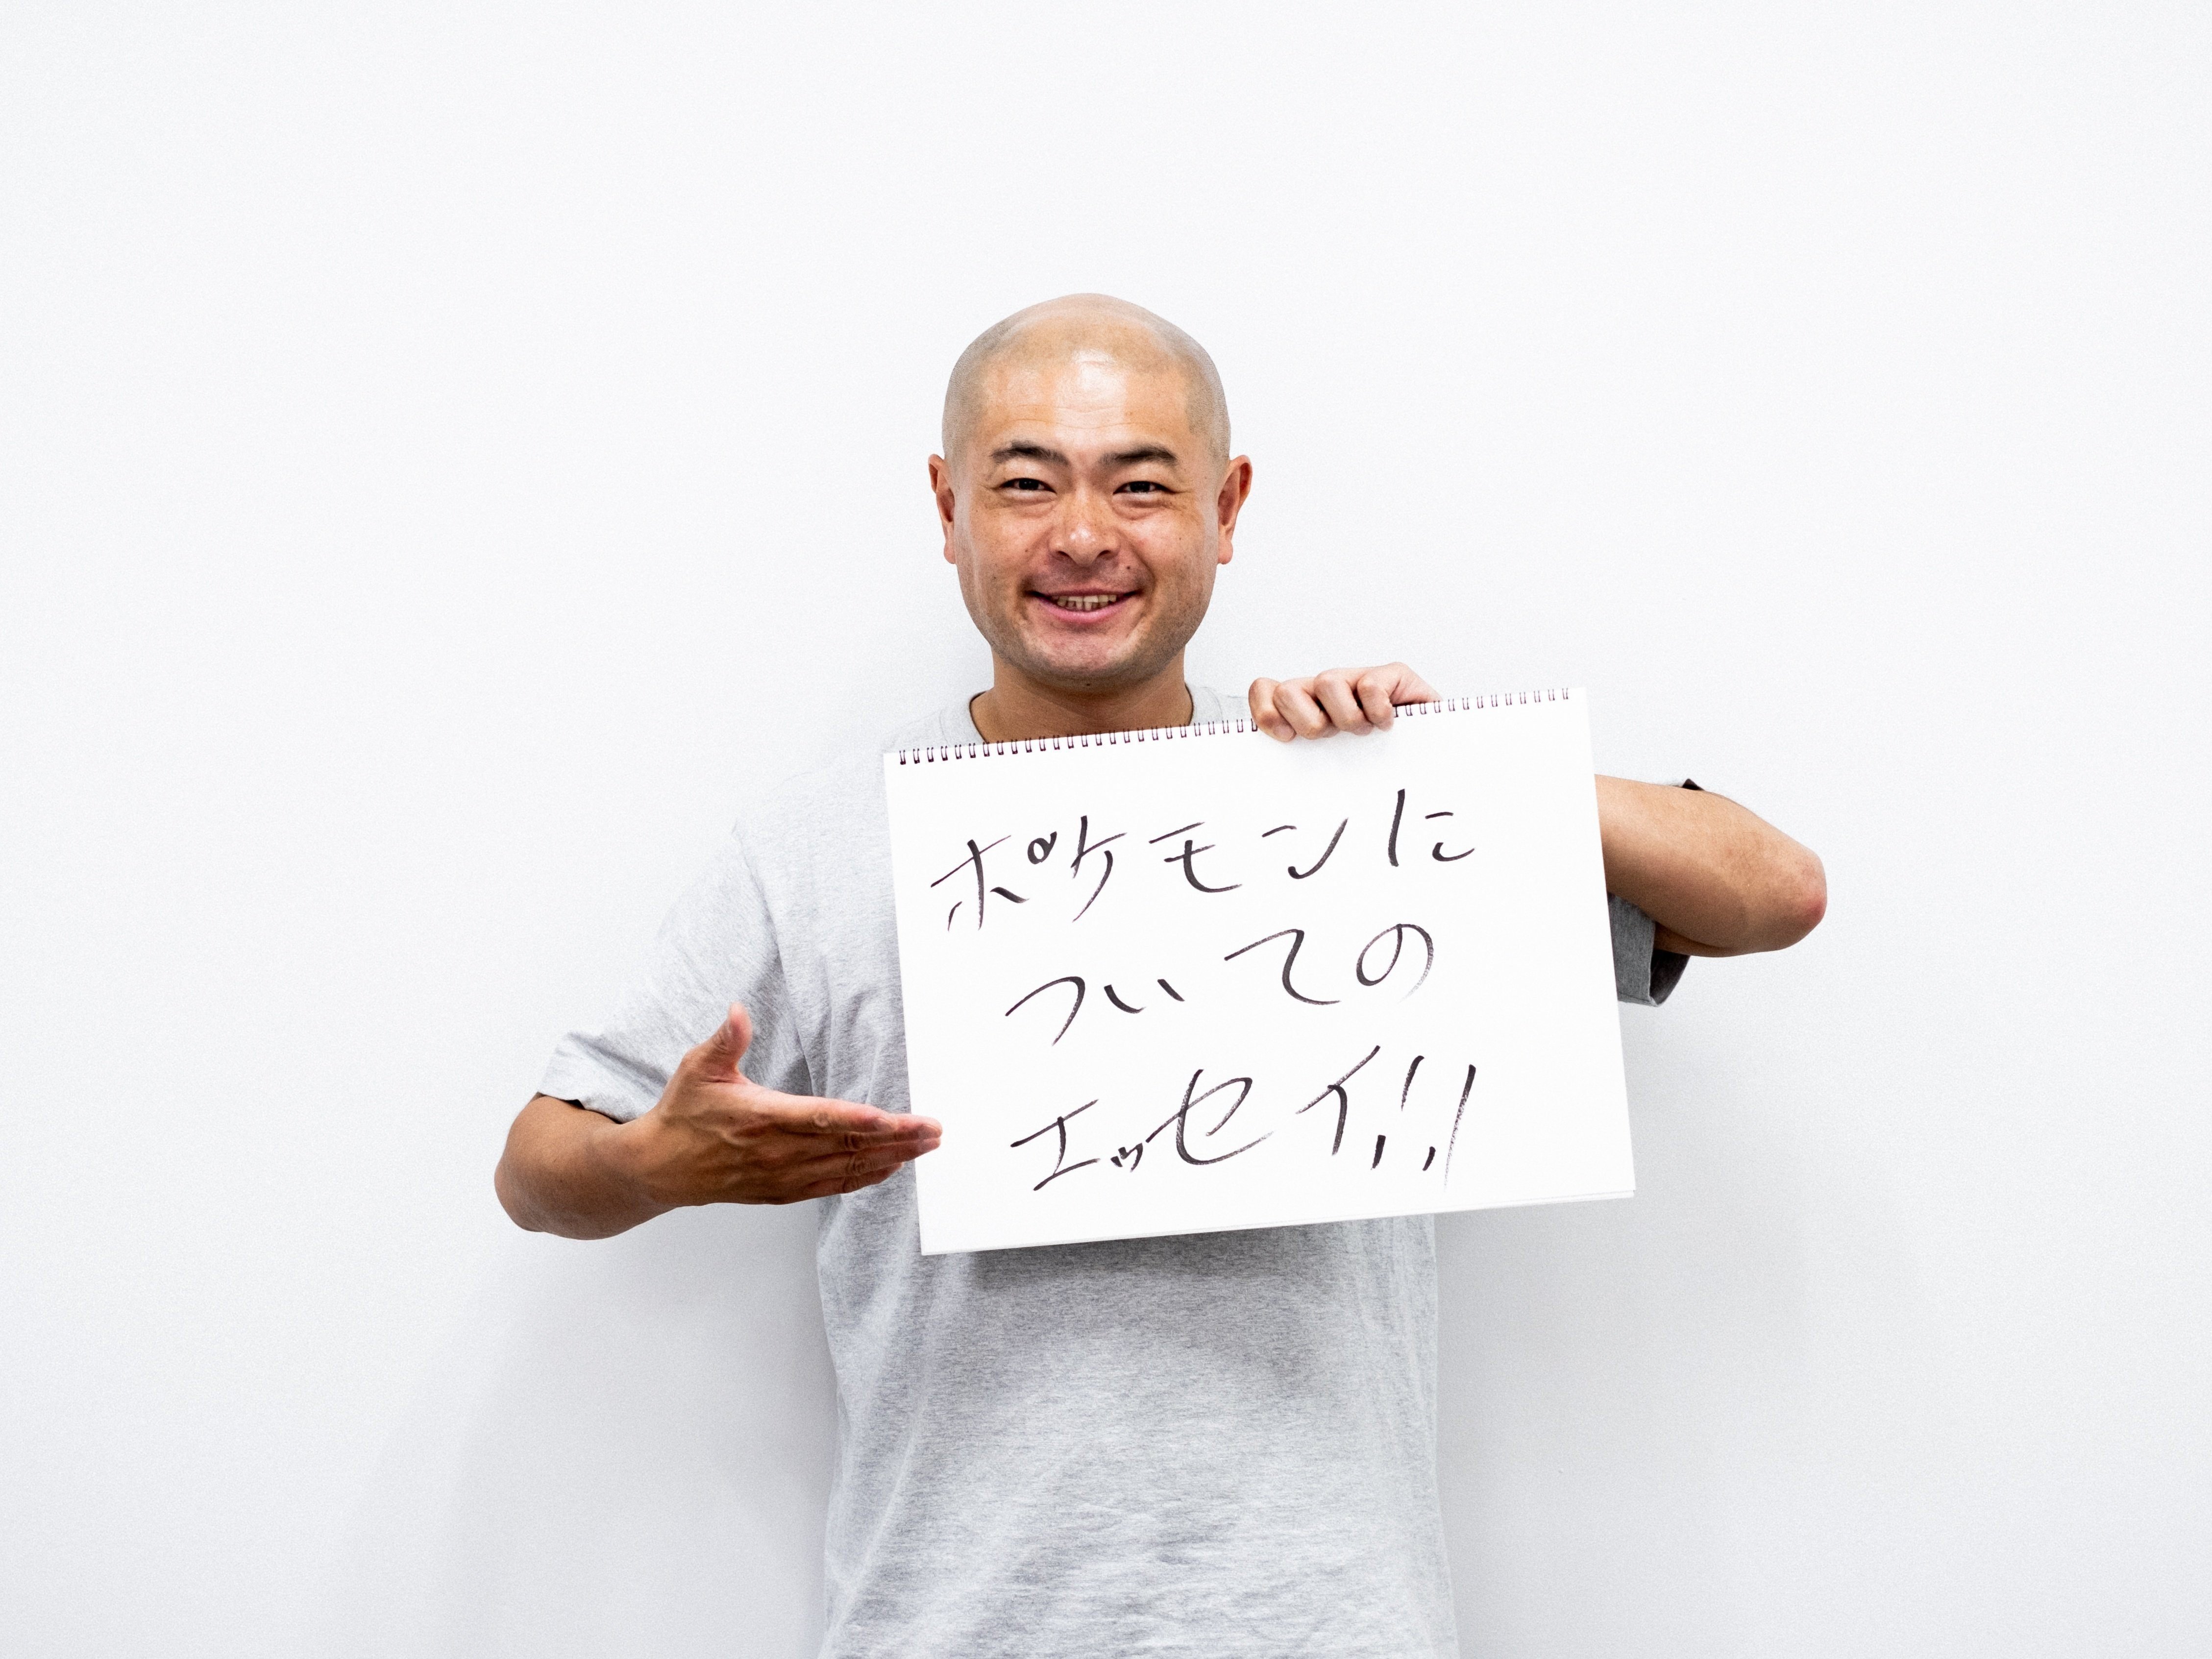 ポケモンに
ついての
エッセイ!!